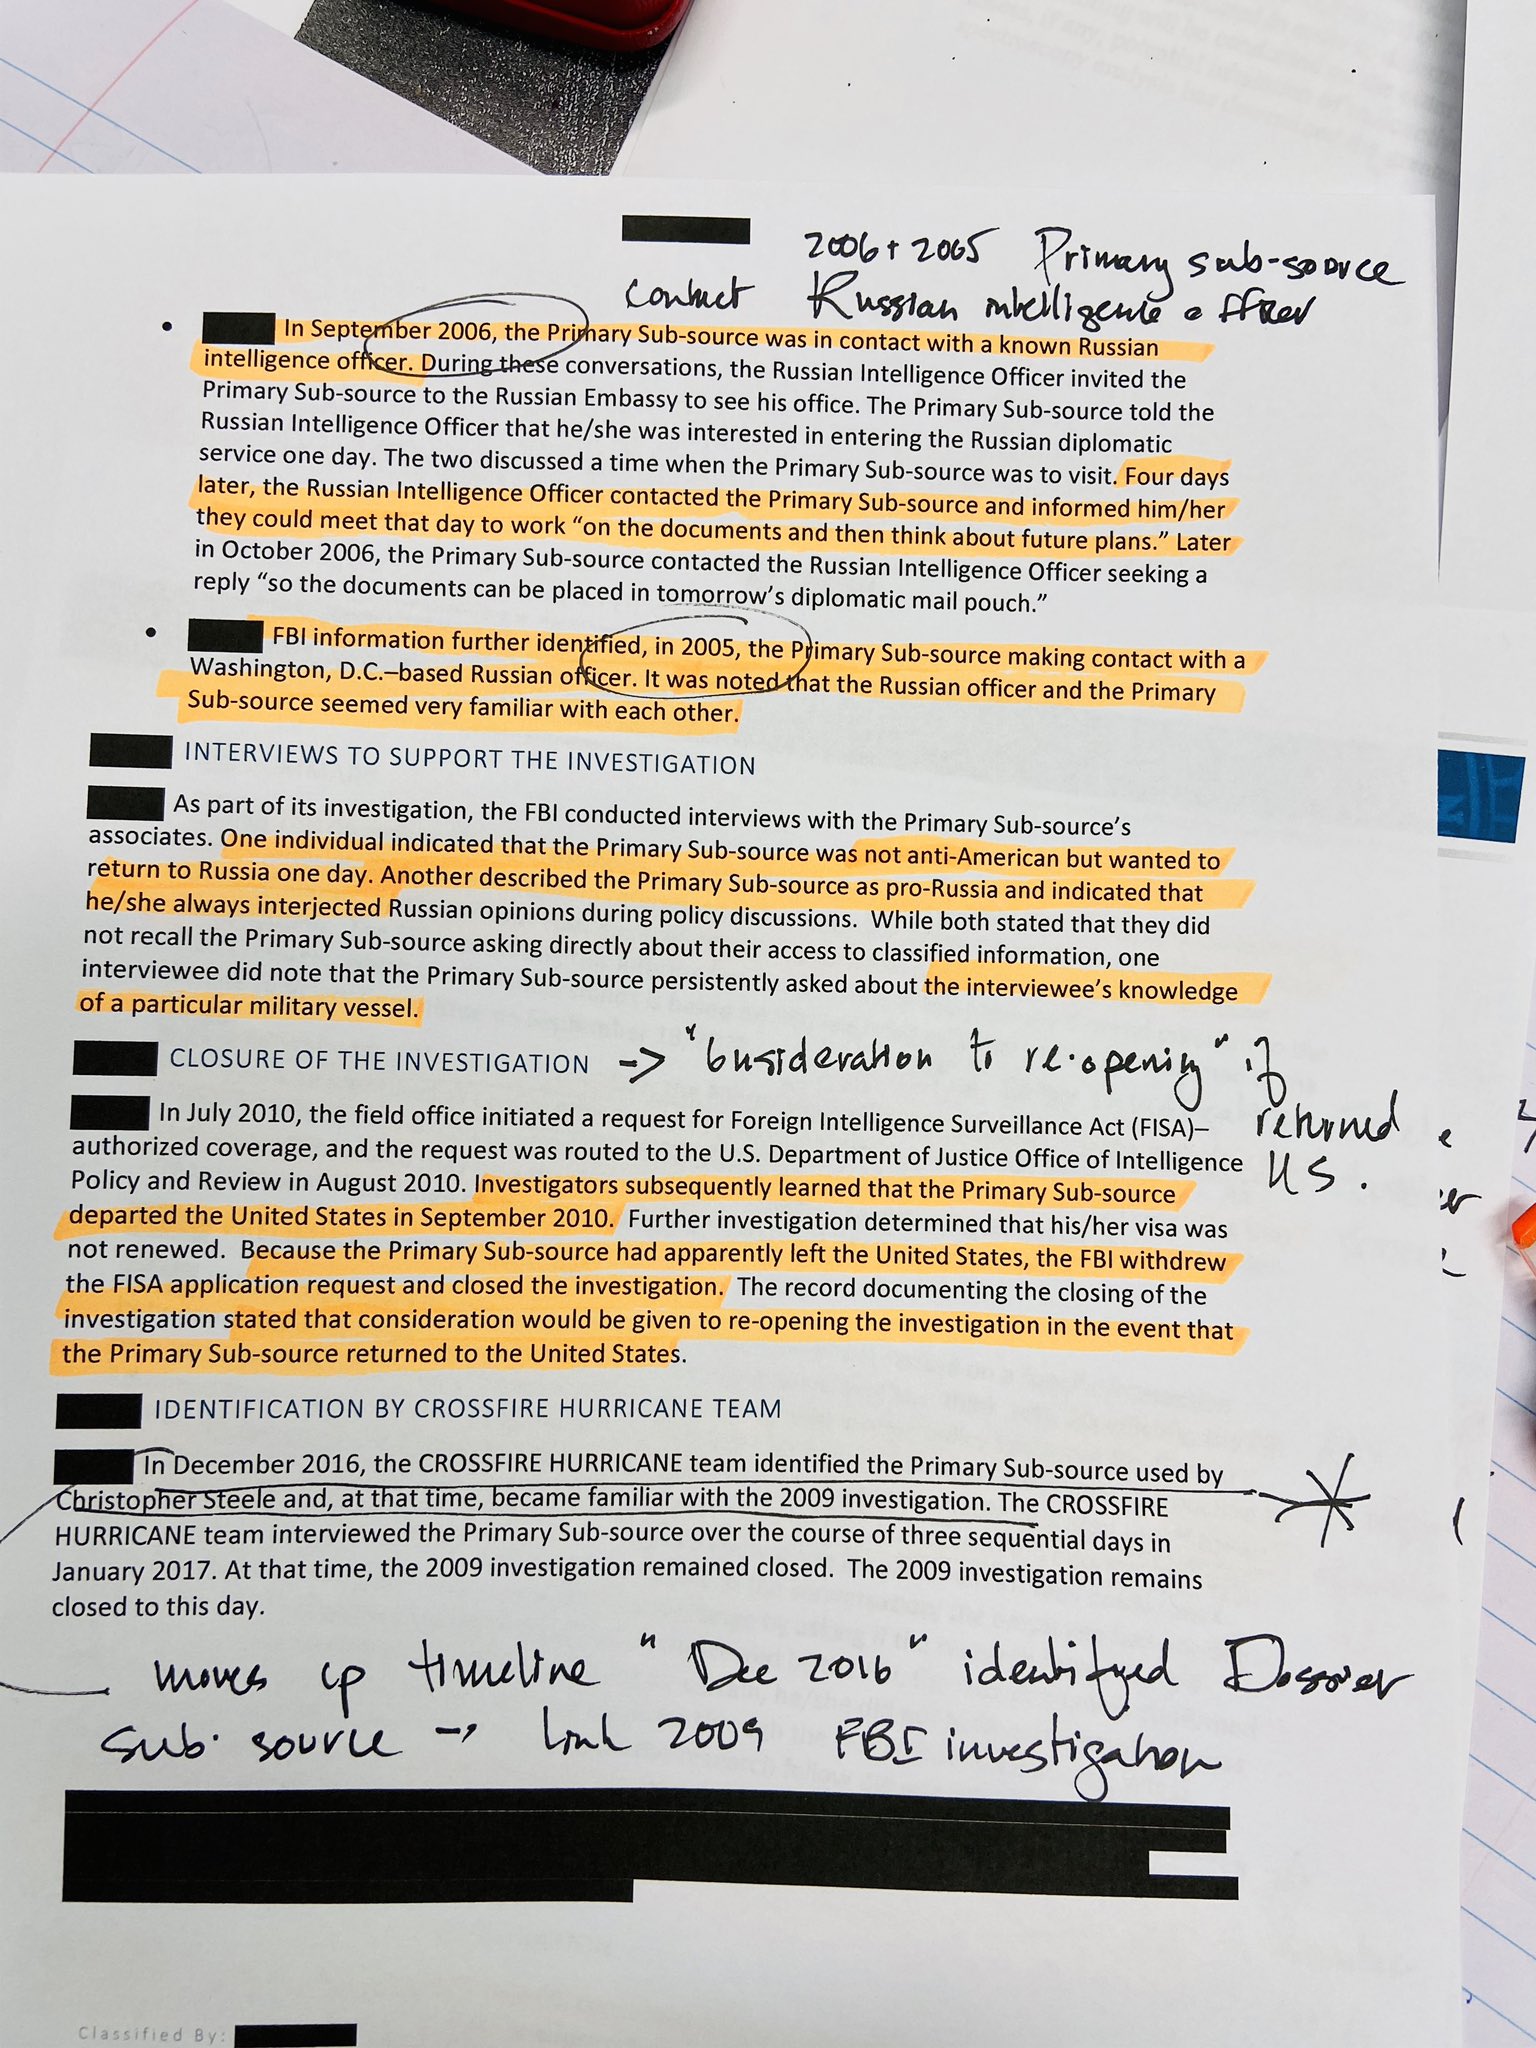 2006 + 2005 Primary sub-source
contact Russian intelligence officer
• In September 2006, the Primary Sub-source was in contact with a known Russian
intelligence officer. During these conversations, the Russian Intelligence Officer invited the
Primary Sub-source to the Russian Embassy to see his office. The Primary Sub-source told the
Russian Intelligence Officer that he/she was interested in entering the Russian diplomatic
service one day. The two discussed a time when the Primary Sub-source was to visit. Four days
later, the Russian Intelligence Officer contacted the Primary Sub-source and informed him/her
they could meet that day to work “on the documents and then think about future plans.” Later
in October 2006, the Primary Sub-source contacted the Russian Intelligence Officer seeking a
reply “so the documents can be placed in tomorrow’s diplomatic mail pouch.”
• FBI information further identified, in 2005, the Primary Sub-source making contact with a
Washington, D.C.–based Russian officer. It was noted that the Russian officer and the Primary
Sub-source seemed very familiar with each other.
INTERVIEWS TO SUPPORT THE INVESTIGATION
As part of its investigation, the FBI conducted interviews with the Primary Sub-source’s
associates. One individual indicated that the Primary Sub-source was not anti-American but wanted to
return to Russia one day. Another described the Primary Sub-source as pro-Russia and indicated that
he/she always interjected Russian opinions during policy discussions. While both stated that they did
not recall the Primary Sub-source asking directly about their access to classified information, one
interviewee did note that the Primary Sub-source persistently asked about the interviewee’s knowledge
of a particular military vessel.
CLOSURE OF THE INVESTIGATION -> "consideration to re-opening" if
returned
US.
In July 2010, the field office initiated a request for Foreign Intelligence Surveillance Act (FISA)–
authorized coverage, and the request was routed to the U.S. Department of Justice Office of Intelligence
Policy and Review in August 2010. Investigators subsequently learned that the Primary Sub-source
departed the United States in September 2010. Further investigation determined that his/her visa was
not renewed. Because the Primary Sub-source had apparently left the United States, the FBI withdrew
the FISA application request and closed the investigation. The record documenting the closing of the
investigation stated that consideration would be given to re-opening the investigation in the event that
the Primary Sub-source returned to the United States.
IDENTIFICATION BY CROSSFIRE HURRICANE TEAM
In December 2016, the CROSSFIRE HURRICANE team identified the Primary Sub-source used by
Christopher Steele and, at that time, became familiar with the 2009 investigation. The CROSSFIRE
HURRICANE team interviewed the Primary Sub-source over the course of three sequential days in
January 2017. At that time, the 2009 investigation remained closed. The 2009 investigation remains
closed to this day.
moves up timeline "Dec 2016" identifyed Dossier
sub-source -> link 2009 FBI investigation
Classified By: